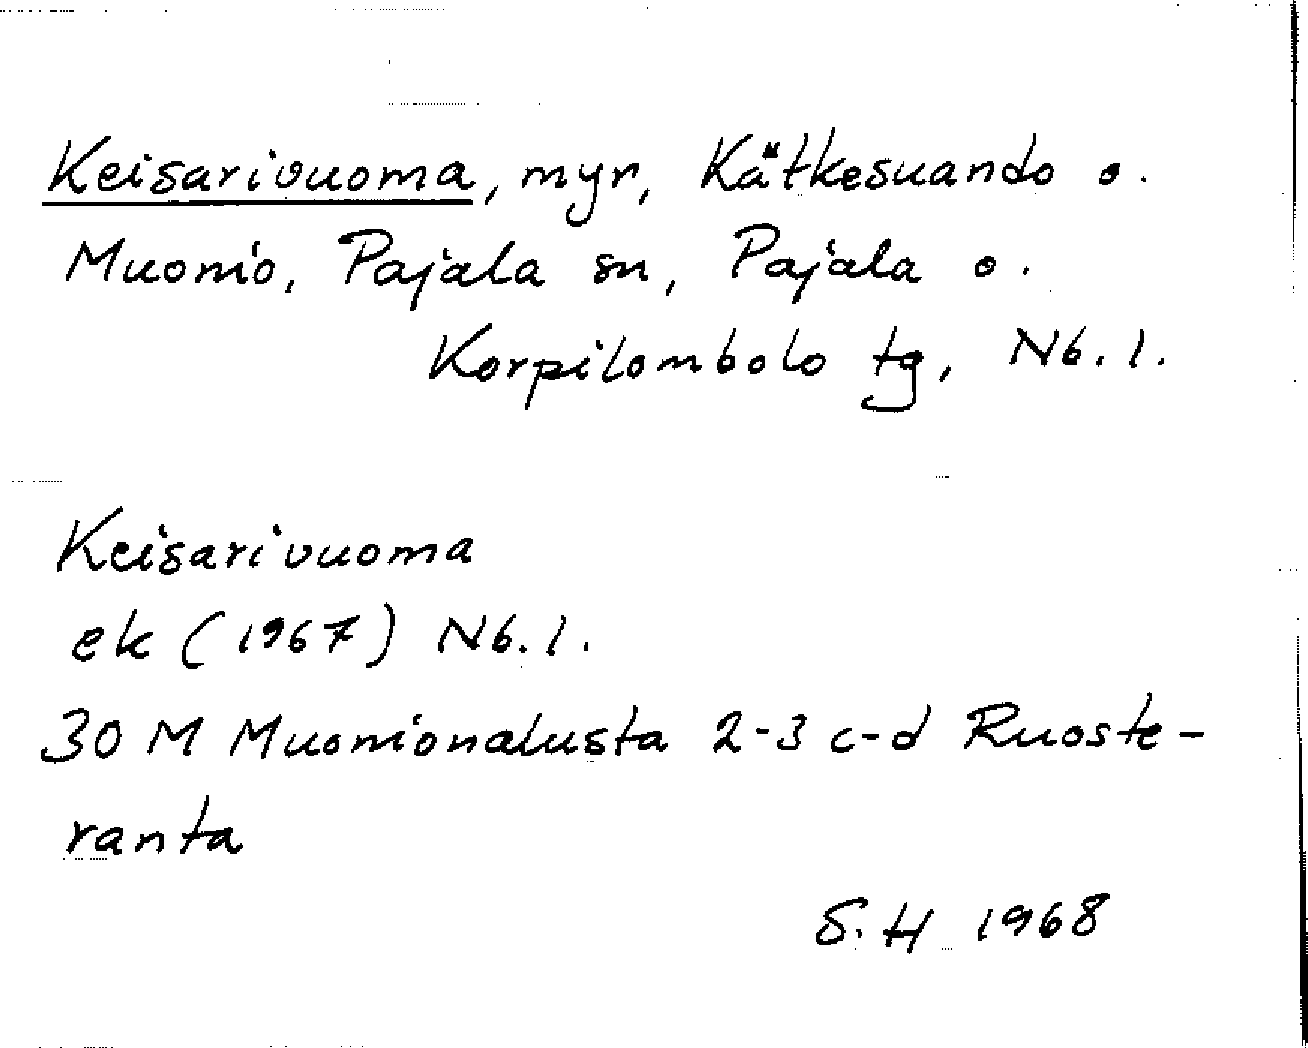 Keisarivuoma, myr, Kätkesuando o.
Muonio, Pajala sn, Pajala o.
Korpilombolo tg, Nb. l.
Keisarivuoma
ek (1967) Nb. l.
30 M Muonionalusta 2-3 c-d Ruoste-
ranta
S. H 1968